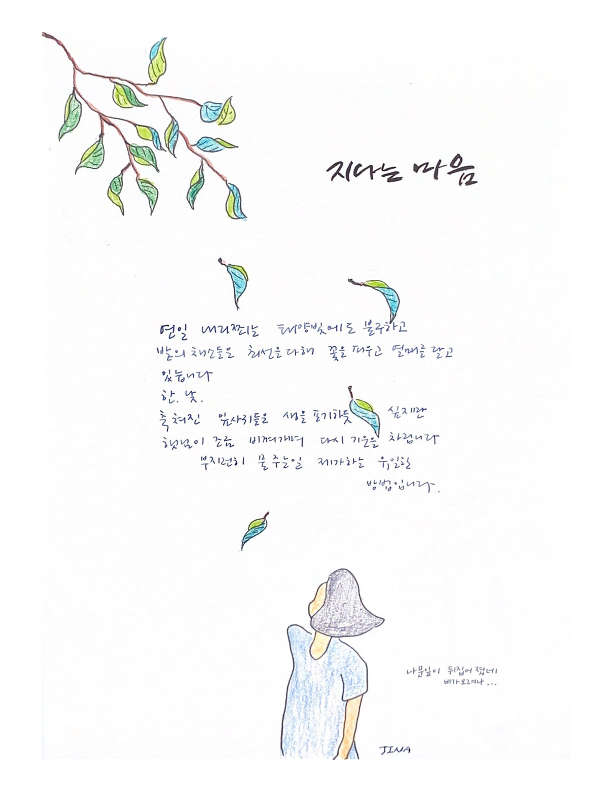 지다는 마음
연일 내리쬐는 태양빛에도 불구하고
밭의 채소들은 최선을 다해 꽃을 피우고 열매를 달고
있습니다
한. 낮.
축 쳐진 잎사귀들은 생을 포기하듯 싶지만
햇님이 조금 비껴가며 다시 기운을 차립니다
부지런히 물주는일 제가하는 유일한
방법입니다.
나뭇잎이 뒤집어 졌네
비가 오려나...
JINA